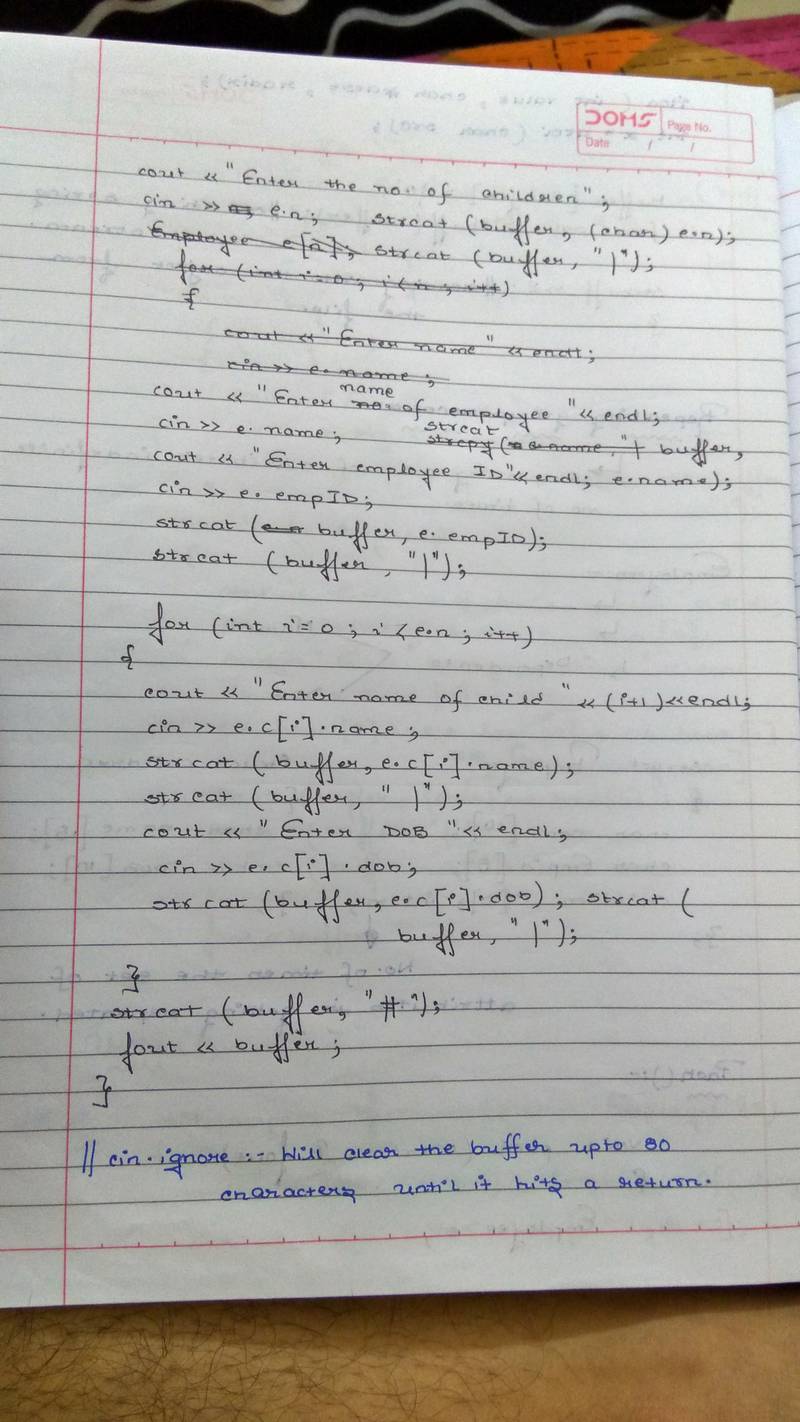 DOMS
Page No.
Date
cout << "Enter the no. of children";
cin >> e.n; strcat (buffer, (char) e.n);
Employee e[n]; strcat (buffer, "|");
for (int i=0; i<n; i++)
{
cout << "Enter name" << endl;
cin >> e.name;
name
cout << "Enter no. of employee "<< endl;
strcat
cin >> e.name; strcpy ( e.name, "| buffer,
cout << "Enter employee ID"<< endl; e.name);
cin >> e.empID;
strcat ( buffer, e.empID);
strcat (buffer, "|");
for (int i=0; i<e.n; i++)
{
cout << "Enter name of child " << (i+1)<<endl;
cin >> e.c[i].name;
strcat (buffer, e.c[i].name);
strcat (buffer, "|");
cout << "Enter DOB "<< endl;
cin >> e.c[i].dob;
strcat (buffer, e.c[i].dob); strcat (
buffer, "|");
}
strcat (buffer, "#");
fout << buffer;
}
// cin.ignore :- Will clear the buffer upto 80
characters until it hits a return.